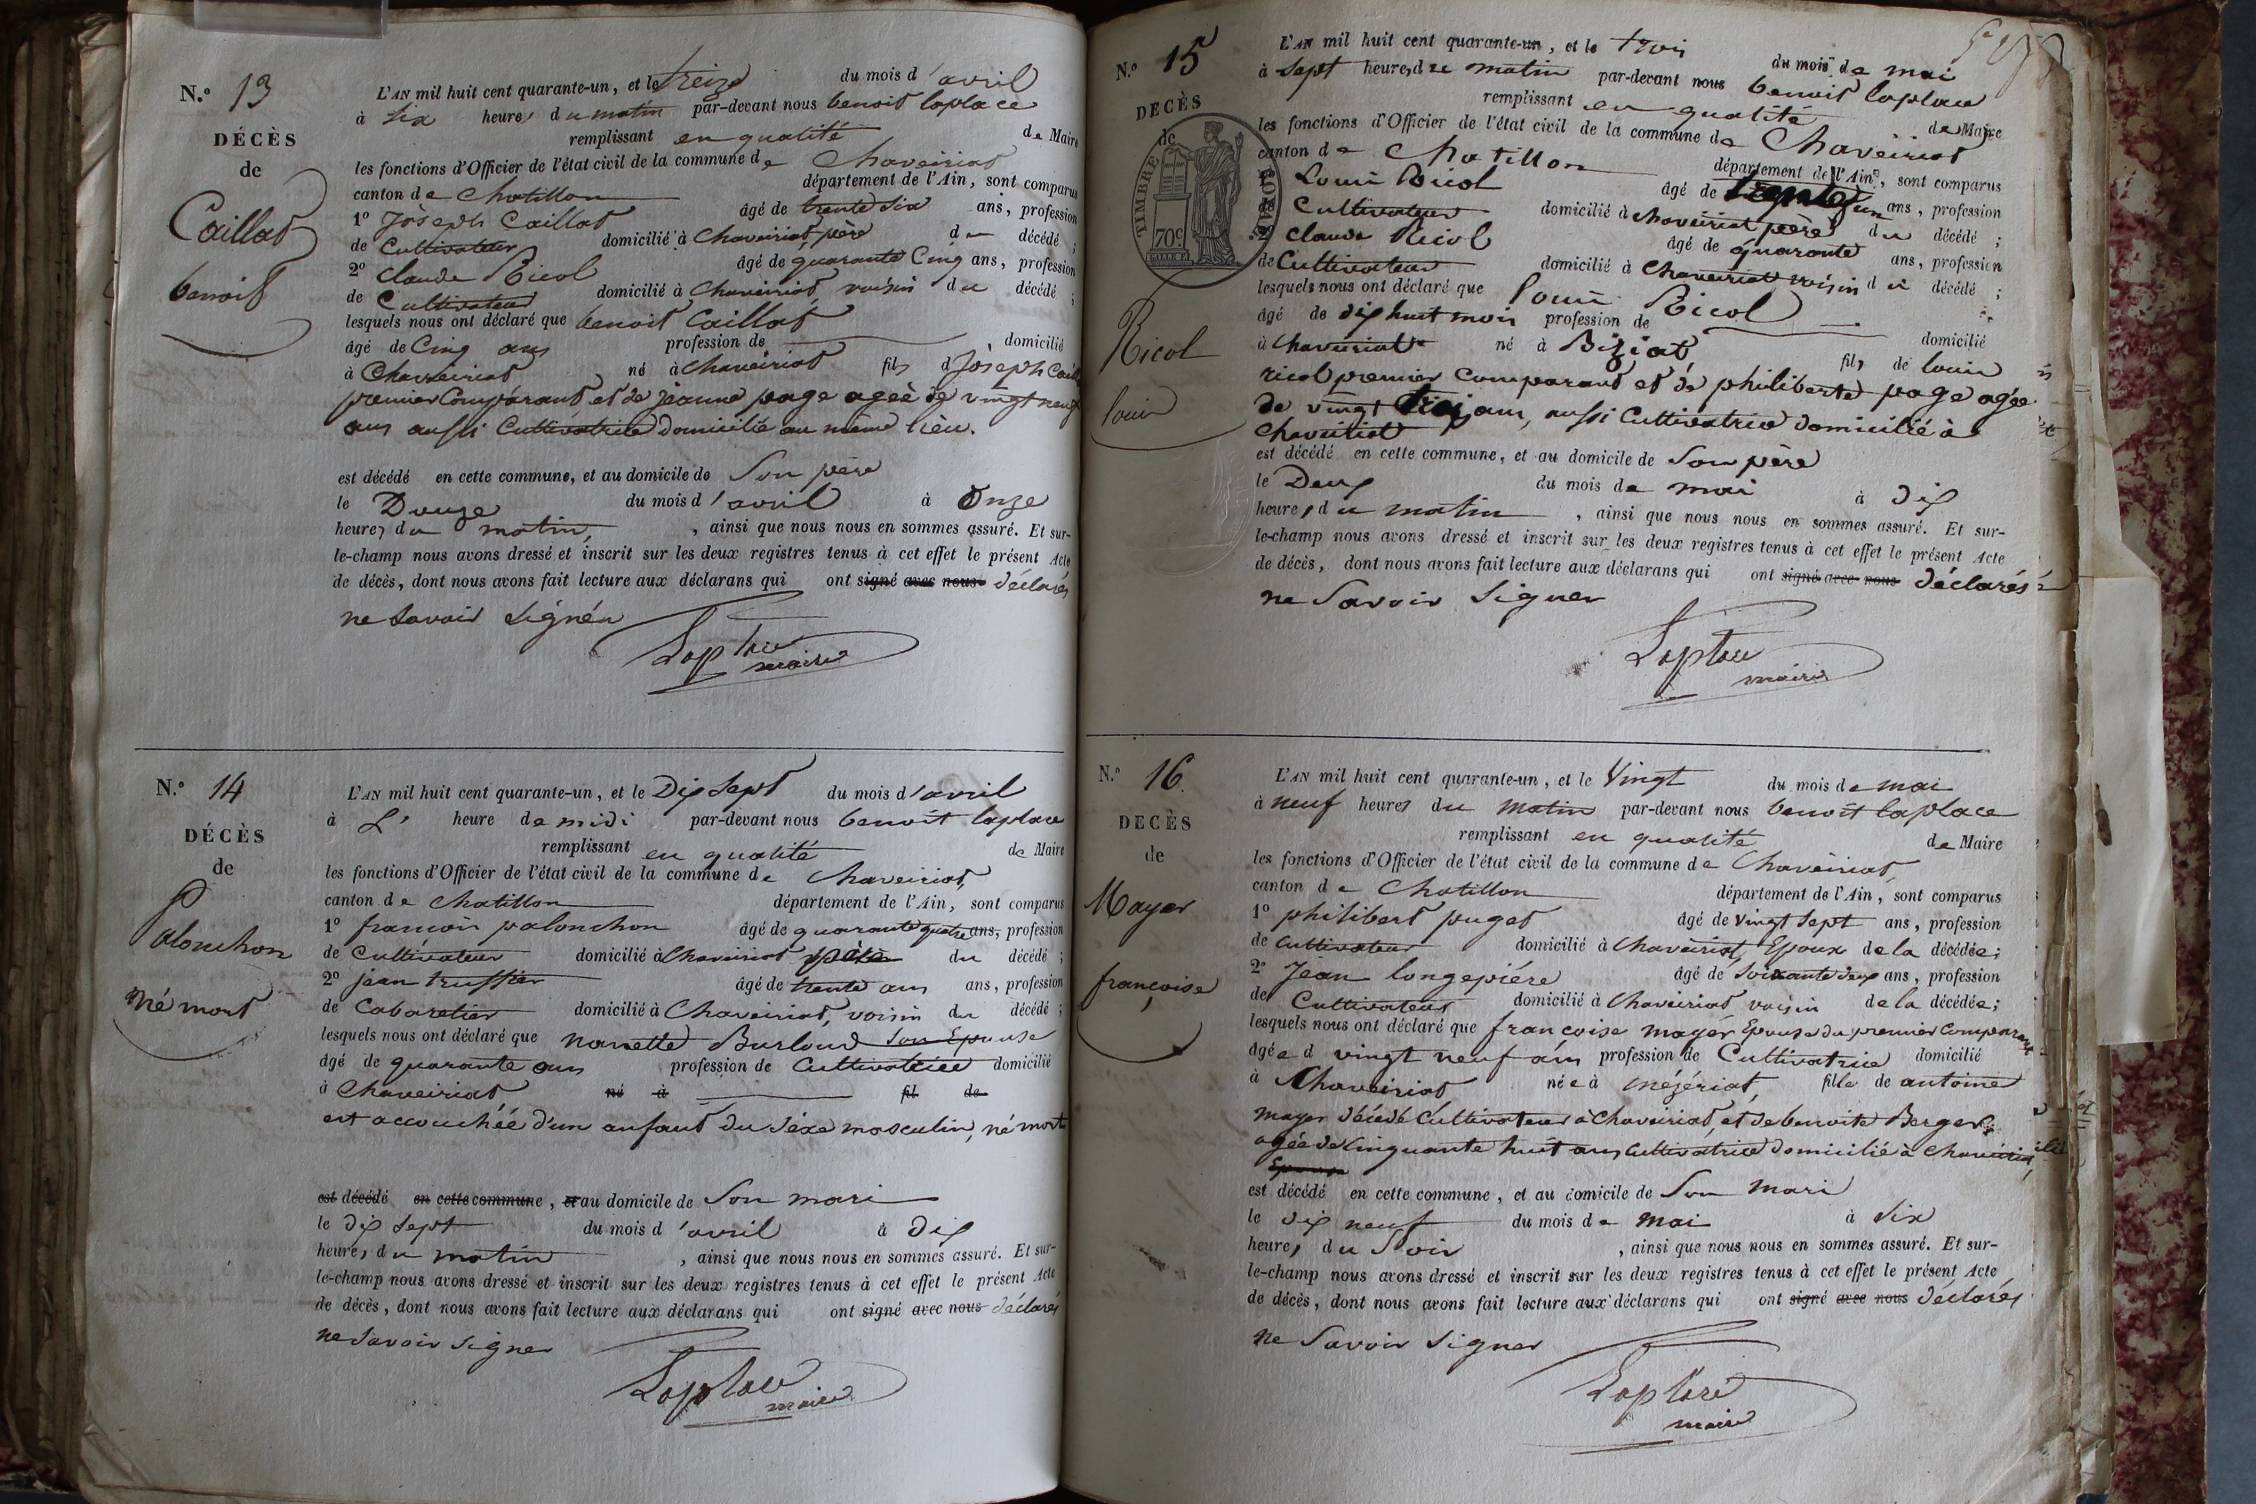 N.º 13
DÉCÈS
de
Caillat
benoit
L'AN mil huit cent quarante-un, et le treize du mois d'avril
à six heures du matin par-devant nous benoit laplace
remplissant en qualité de Maire
les fonctions d'Officier de l'état civil de la commune de Chaveiriat
canton de Chatillon département de l'Ain, sont comparus
1º Joseph Caillat âgé de trente six ans, profession
de Cultivateur domicilié à Chaveiriat père du décédé ;
2º claude Ricol âgé de quarante Cinq ans, profession
de Cultivateur domicilié à Chaveiriat voisin du décédé ;
lesquels nous ont déclaré que benoit Caillat
âgé de Cinq ans profession de domicilié
à Chaveiriat né à Chaveiriat fils d Joseph Caillat
premier Comparant et de jeanne page agée de vingt neuf
ans aussi Cultivatrice domicilié au même lieu.
est décédé en cette commune, et au domicile de Son père
le Douze du mois d'avril à Onze
heures du matin, , ainsi que nous nous en sommes assuré. Et sur-
le-champ nous avons dressé et inscrit sur les deux registres tenus à cet effet le présent Acte
de décès, dont nous avons fait lecture aux déclarans qui ont signé avec nous déclarés
ne Savoir signér
Laplace
maire
N.º 14
DÉCÈS
de
Palonchon
Né mort
L'AN mil huit cent quarante-un, et le Dix Sept du mois d'avril
à L' heure de midi par-devant nous benoit laplace
remplissant en qualité de Maire
les fonctions d'Officier de l'état civil de la commune de Chaveiriat,
canton de Chatillon département de l'Ain, sont comparus
1º françois palonchon âgé de quarante quatre ans, profession
de Cultivateur domicilié à Chaveiriat père du décédé ;
2º jean truffier âgé de trente ans ans, profession
de Cabaretier domicilié à Chaveiriat, voisin du décédé ;
lesquels nous ont déclaré que nanette Burloud Son Epouse
âgé de quarante ans profession de Cultivatrice domicilié
à Chaveiriat né à fil de
est accouchéé d'un anfant du Séxe masculin, né mort
est décédé en cette commune, et au domicile de Son mari
le dix sept du mois d'avril à dix
heures du matin , ainsi que nous nous en sommes assuré. Et sur-
le-champ nous avons dressé et inscrit sur les deux registres tenus à cet effet le présent Acte
de décès, dont nous avons fait lecture aux déclarans qui ont signé avec nous déclarés
ne Savoir signer
Laplace
maire
N.º 15
DECÈS
de
TIMBRE ROYAL
70c
Ricol
louis
L'AN mil huit cent quarante-un, et le trois du mois de mai
à sept heures du matin par-devant nous benoit laplace
remplissant en qualité de Maire
les fonctions d'Officier de l'état civil de la commune de Chaveiriat
canton de Chatillon département de l'Ain, sont comparus
Louis Ricol âgé de trente un ans, profession
de Cultivateur domicilié à Chaveiriat père du décédé ;
claude Ricol âgé de quarante ans, profession
de Cultivateur domicilié à Chaveiriat voisin du décédé ;
lesquels nous ont déclaré que louis Ricol
âgé de dix huit mois profession de domicilié
à Chaveiriat né à Biziat fils de louis
ricol premier comparant et de philiberte page agée
de vingt ans, aussi Cultivatrice domicilié à
Chaveiriat
est décédé en cette commune, et au domicile de Son père
le Deux du mois de mai à dix
heures du matin , ainsi que nous nous en sommes assuré. Et sur-
le-champ nous avons dressé et inscrit sur les deux registres tenus à cet effet le présent Acte
de décès, dont nous avons fait lecture aux déclarans qui ont signé avec nous déclarés
ne Savoir Signer
Laplace
maire
N.º 16
DECÈS
de
Mayer
françoise
L'AN mil huit cent quarante-un, et le Vingt du mois de mai
à neuf heures du matin par-devant nous benoit laplace
remplissant en qualité de Maire
les fonctions d'Officier de l'état civil de la commune de Chaveiriat,
canton de Chatillon département de l'Ain, sont comparus
1º philibert puget âgé de vingt sept ans, profession
de Cultivateur domicilié à Chaveiriat, Epoux de la décédée ;
2º Jean longepiére âgé de Soixante deux ans, profession
de Cultivateur domicilié à Chaveiriat voisin de la décédée ;
lesquels nous ont déclaré que françoise mayer Epouse du premier Comparant
âgée d vingt neuf ans profession de Cultivatrice domicilié
à Chaveiriat née à mézériat, fille de antoine
mayer décédé Cultivateur à Chaveiriat, et de benoite Berger,
agée de Cinquante huit ans Cultivatrice domicilié à Chaveiriat,
Epouse
est décédé en cette commune, et au domicile de Son mari
le dix neuf du mois de mai à Six
heures du Soir , ainsi que nous nous en sommes assuré. Et sur-
le-champ nous avons dressé et inscrit sur les deux registres tenus à cet effet le présent Acte
de décès, dont nous avons fait lecture aux déclarans qui ont signé avec nous déclarés
ne Savoir Signer
Laplace
maire